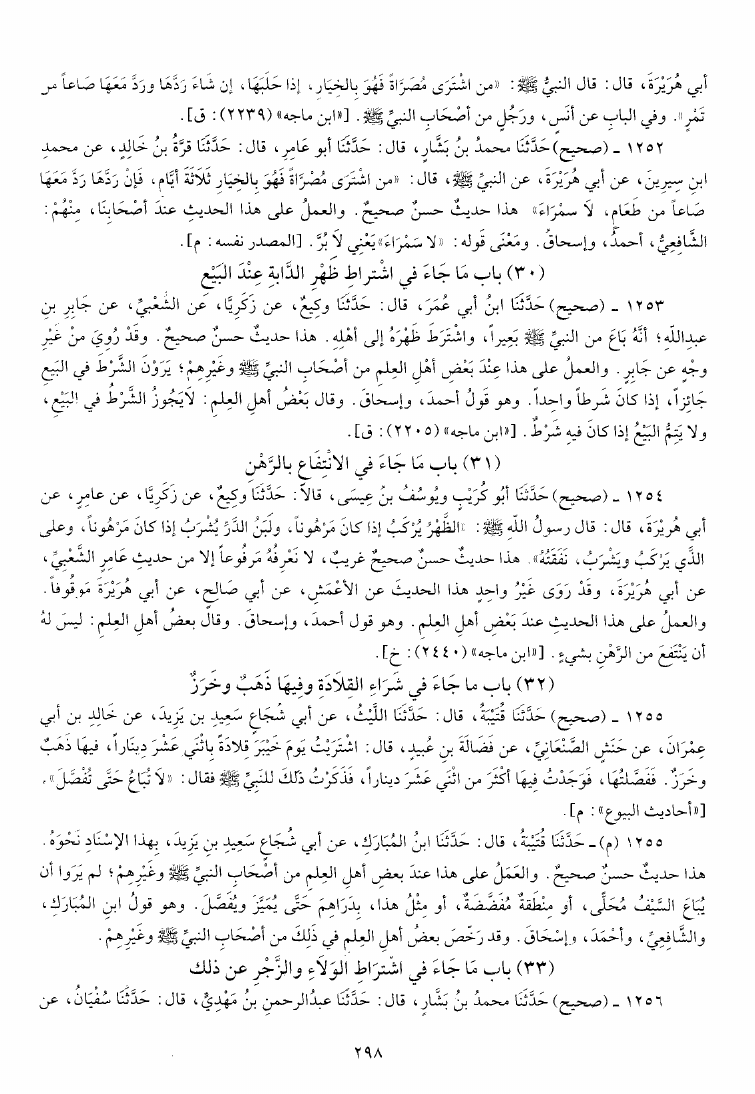 أبي هُرَيْرَةَ، قال: قال النبيُّ ﷺ: «من اشْتَرَى مُصَرَّاةً فَهُوَ بِالخِيَارِ، إذا حَلَبَهَا، إن شَاءَ رَدَّهَا وردَّ مَعَهَا صَاعاً من
تَمْرٍ». وفي البابِ عن أنَسٍ، ورَجُلٍ من أصْحَابِ النبيِّ ﷺ. [«ابن ماجه» (٢٢٣٩): ق].
١٢٥٢ ـ (صحيح) حَدَّثَنَا محمدُ بنُ بَشَّارٍ، قال: حَدَّثَنَا أبو عَامِرٍ، قال: حَدَّثَنَا قُرَّةُ بنُ خَالِدٍ، عن محمدِ
ابنِ سِيرِينَ، عن أبي هُرَيْرَةَ، عن النبيِّ ﷺ، قال: «من اشْتَرَى مُصْرَّاةً فَهُوَ بِالخِيَارِ ثَلَاثَةَ أيَّامٍ، فَإنْ رَدَّهَا رَدَّ مَعَهَا
صَاعاً من طَعَامٍ، لَا سَمْرَاءَ» هذا حديثٌ حسنٌ صحيحٌ. والعملُ على هذا الحديثِ عندَ أصْحَابِنَا، مِنْهُمْ:
الشَّافِعِيُّ، أحمدُ، وإسحاقُ. ومَعْنَى قوله: «لا سَمْرَاءَ» يَعْنِي لَا بُرَّ. [المصدر نفسه: م].
(٣٠) باب مَا جَاءَ في اشْتراطِ ظَهْرِ الدَّابةِ عِنْدَ البَيْعِ
١٢٥٣ ـ (صحيح) حَدَّثَنَا ابنُ أبي عُمَرَ، قال: حَدَّثَنَا وكيعٌ، عن زَكَرِيَّا، عَن الشَّعْبيِّ، عن جَابِرِ بنِ
عبداللهِ؛ أنَّهُ بَاعَ من النبيِّ ﷺ بَعِيراً، واشْتَرَطَ ظَهْرَهُ إلى أهْلِهِ. هذا حديثٌ حسنٌ صحيحٌ. وقَدْ رُوِيَ منْ غَيْرِ
وجْهٍ عن جَابِرٍ. والعملُ على هذا عِنْدَ بَعْضِ أهْلِ العِلمِ من أصْحَابِ النبيِّ ﷺ وغَيْرِهِمْ؛ يَرَوْنَ الشَّرْطَ في البَيْعِ
جَائِزاً، إذا كانَ شَرطاً واحِداً. وهو قَولُ أحمدَ، وإسحاقَ. وقال بَعْضُ أهلِ العِلمِ: لَايَجُوزُ الشَّرْطُ في البَيْعِ،
ولا يَتِمُّ البَيْعُ إذا كانَ فيهِ شَرْطٌ. [«ابن ماجه» (٢٢٠٥): ق].
(٣١) باب مَا جَاءَ في الانْتِفَاعِ بالرَّهْنِ
١٢٥٤ ـ (صحيح) حَدَّثَنَا أبُو كُرَيْبٍ ويُوسُفُ بنُ عِيسَى، قَالَا: حَدَّثَنَا وكِيعٌ، عن زَكَرِيَّا، عن عامِرٍ، عن
أبي هُرَيْرَةَ، قال: قال رسولُ اللهِ ﷺ: «الظَّهْرُ يُرْكَبُ إذا كانَ مَرْهُوناً، ولَبَنُ الدَّرِّ يُشْرَبُ إذا كانَ مَرْهُوناً، وعلى
الذَّي يَرْكَبُ ويَشْرَبُ، نَفَقَتُهُ». هذا حديثٌ حسنٌ صحيحٌ غريبٌ، لا نَعْرِفُهُ مَرفُوعاً إلا من حديثِ عَامِرٍ الشَّعْبِيِّ،
عن أبي هُرَيْرَةَ، وقَدْ رَوَى غَيْرُ واحِدٍ هذا الحديثَ عن الأعْمَشِ، عن أبي صَالِحٍ، عن أبي هُرَيْرَةَ مَوقُوفاً.
والعملُ على هذا الحديثِ عندَ بَعْضِ أهلِ العِلمِ. وهو قول أحمدَ، وإسحاقَ. وقال بعضُ أهلِ العِلمِ: ليسَ لهُ
أن يَنْتَفِعَ من الرَّهْنِ بشيءٍ. [«ابن ماجه» (٢٤٤٠): خ].
(٣٢) باب ما جَاءَ في شَرَاءِ القِلَادَةِ وفِيهَا ذَهَبٌ وخَرَزٌ
١٢٥٥ ـ (صحيح) حَدَّثَنَا قُتَيْبَةُ، قال: حَدَّثَنَا اللَّيْثُ، عن أبي شُجَاعٍ سَعِيدِ بنِ يَزِيدَ، عن خَالِدِ بنِ أبي
عِمْرَانَ، عن حَنَشٍ الصَّنْعَانِيِّ، عن فَضَالَةَ بنِ عُبيدٍ، قال: اشْتَرَيْتُ يومَ خَيْبَرَ قِلَادَةً بِاثْنَي عَشَرَ دِينَاراً، فيهَا ذَهَبٌ
وخَرَزٌ. فَفَصَّلْتُهَا، فَوَجَدْتُ فِيهَا أكْثَرَ من اثْنَي عَشَرَ ديناراً، فَذَكَرْتُ ذلكَ للنبيِّ ﷺ فقال: «لا تُبَاعُ حَتَّى تُفْصَّلَ».
[«أحاديث البيوع»: م].
١٢٥٥ (م) ـ حَدَّثَنَا قُتَيْبَةُ، قال: حَدَّثَنَا ابنُ المُبَارَكِ، عن أبي شُجَاعٍ سَعِيدِ بنِ يَزِيدَ، بِهذا الإسْنَادِ نَحْوَهُ.
هذا حديثٌ حسنٌ صحيحٌ. والعَمَلُ على هذا عندَ بعضِ أهلِ العِلمِ من أصْحَابِ النبيِّ ﷺ وغَيْرِهِمْ؛ لم يَرَوا أن
يُبَاعَ السَّيْفُ مُحَلًّى، أو مِنْطَقَةٌ مُفَضَّضَةٌ، أو مِثْلُ هذا، بِدَرَاهِمَ حَتَّى يُمَيَّزَ ويُفَصَّلَ. وهو قولُ ابنِ المُبَارَكِ،
والشَّافِعِيِّ، وأحْمَدَ، وإسْحَاقَ. وقد رَخَّصَ بعضُ أهلِ العِلمِ في ذَلِكَ من أصْحَابِ النبيِّ ﷺ وغَيْرِهِمْ.
(٣٣) باب مَا جَاءَ في اشْتراطِ الوَلَاءِ والزَّجْرِ عن ذلك
١٢٥٦ ـ (صحيح) حَدَّثَنَا محمدُ بنُ بَشَّارٍ، قال: حَدَّثَنَا عبدُالرحمنِ بنُ مَهْدِيٍّ، قال: حَدَّثَنَا سُفْيَانُ، عن
٢٩٨